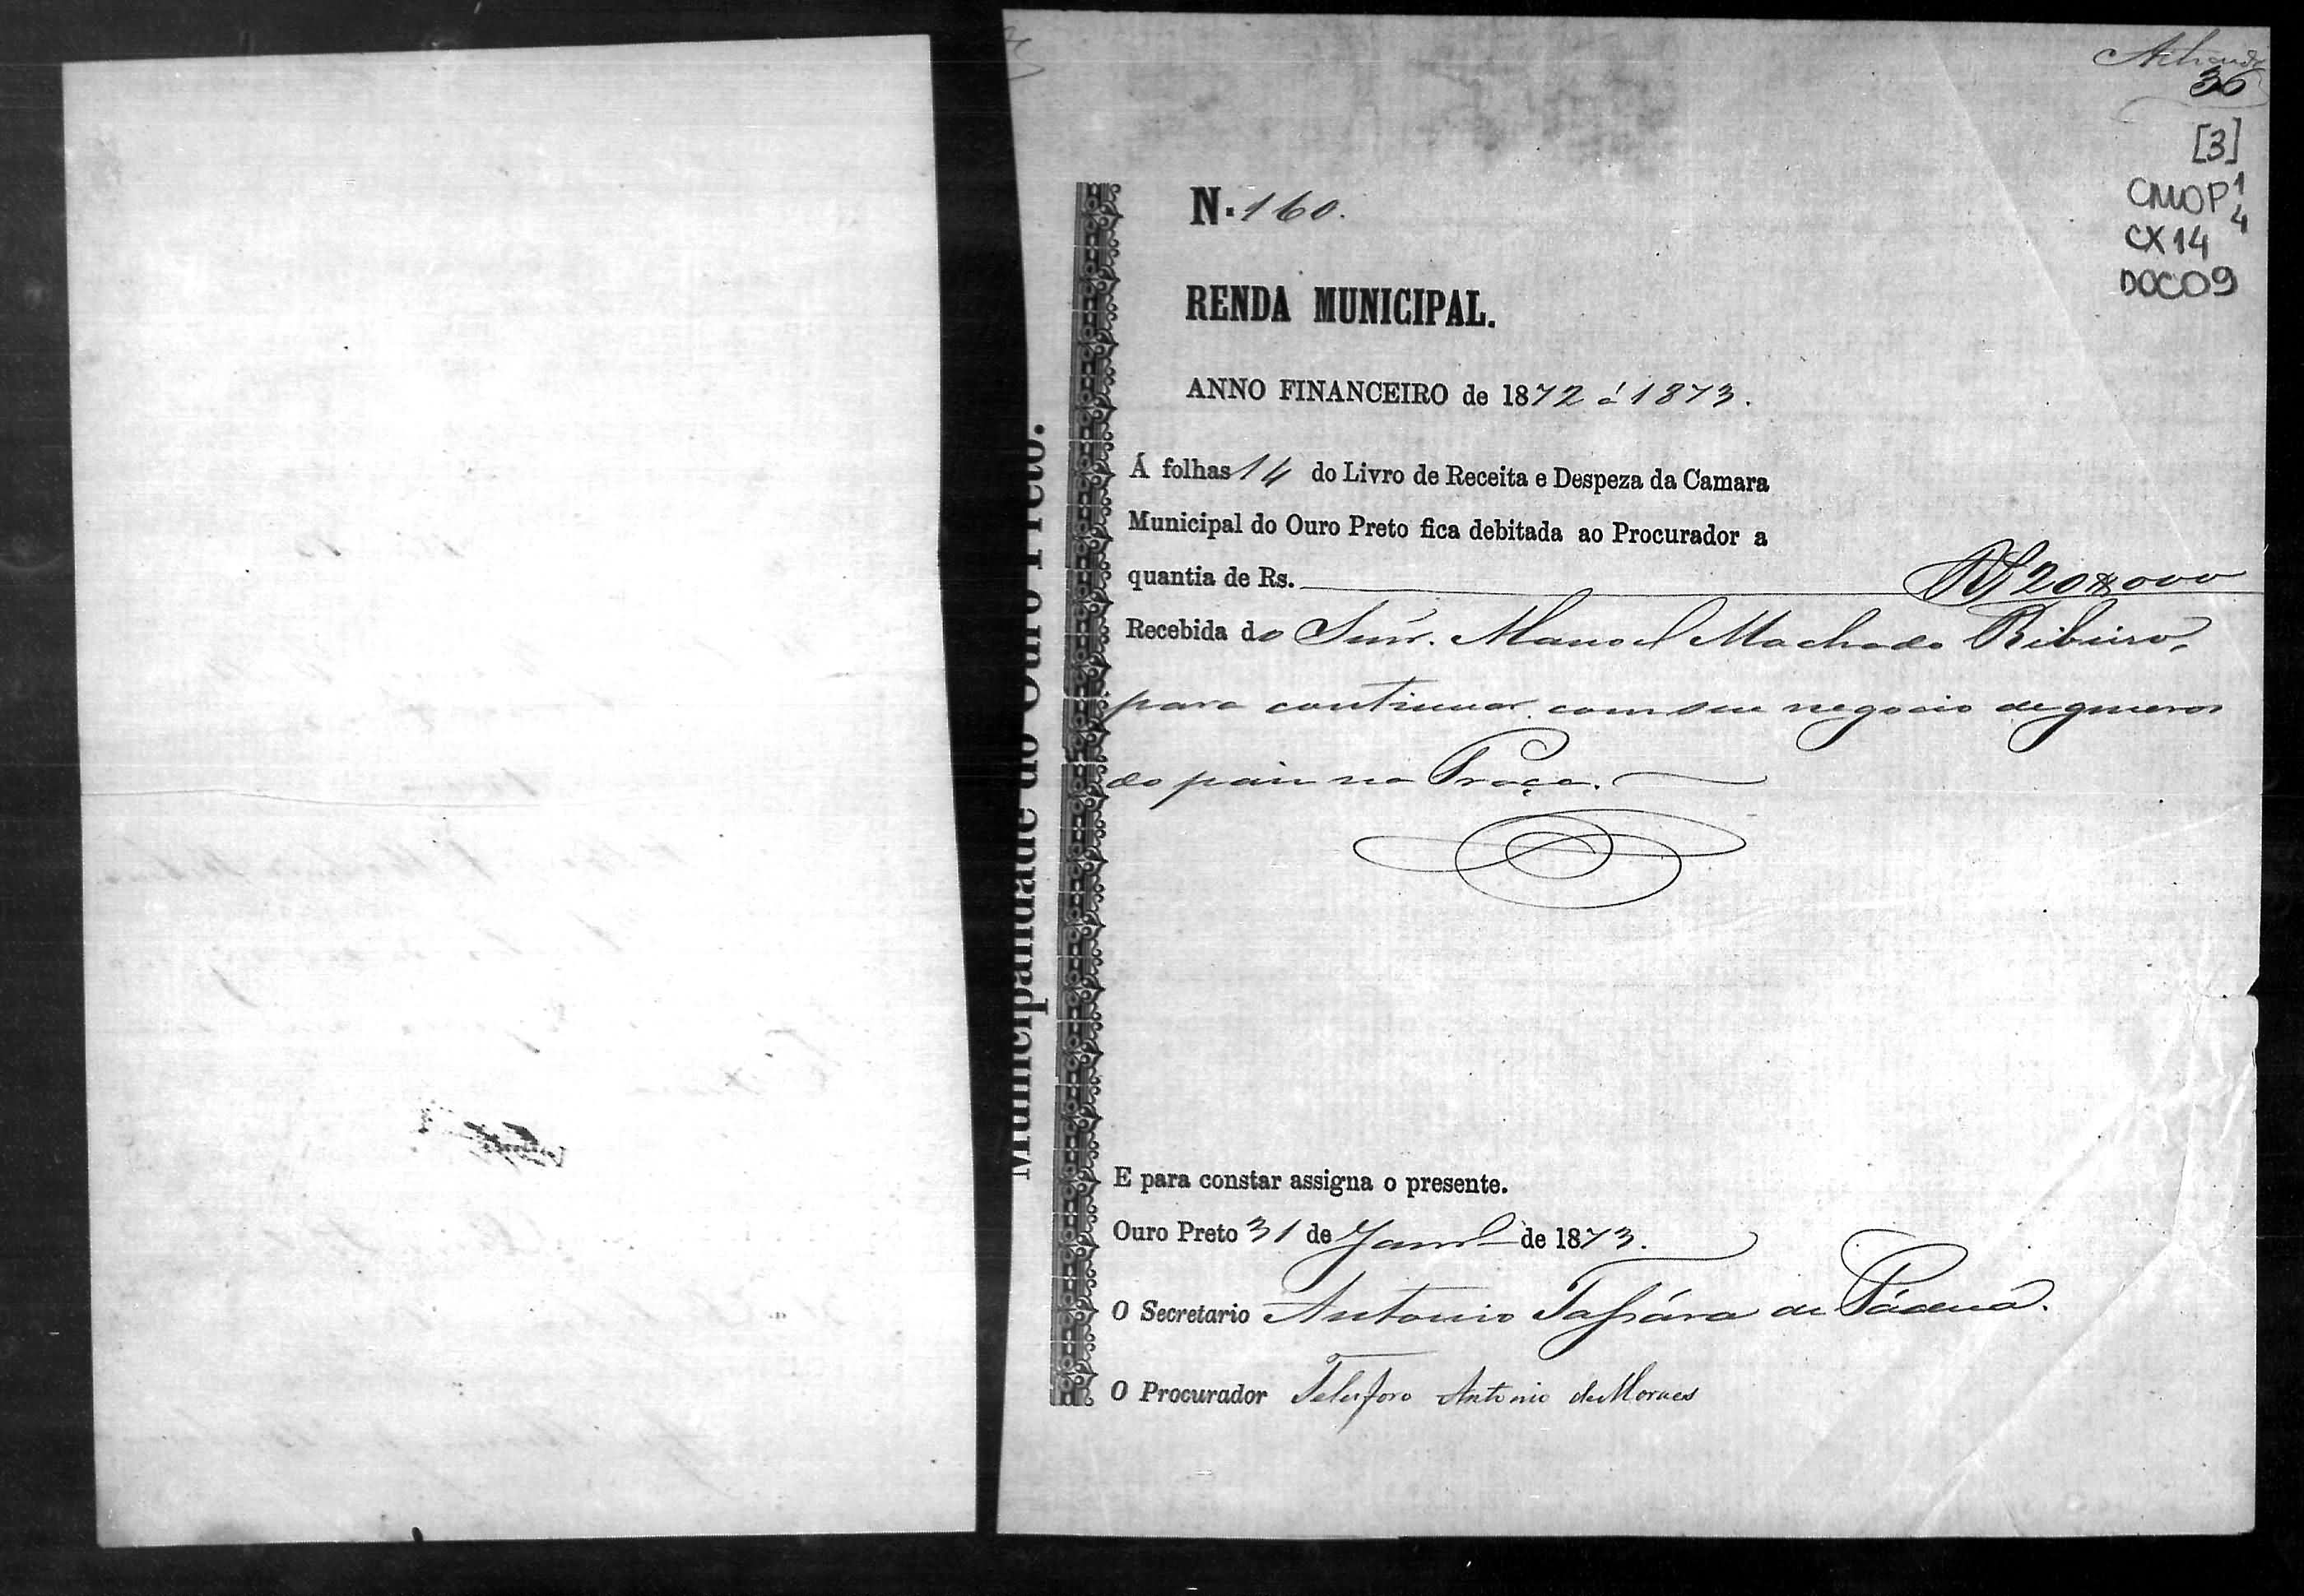 36
[3]
CMOP 1
4
CX14
DOC09
N. 160.
RENDA MUNICIPAL.
ANNO FINANCEIRO de 1872 á 1873.
Á folhas 14 do Livro de Receita e Despeza da Camara
Municipal do Ouro Preto fica debitada ao Procurador a
quantia de Rs. Rs 20$000
Recebida do Snr. Manoel Machado Ribeiro,
para continuar com seu negocio de generos
do paiz na Praça.
E para constar assigna o presente.
Ouro Preto 31 de Janr.o de 1873.
O Secretario Antonio de
O Procurador Telesforo Antonio de Moraes
Municipalidade do Ouro Preto.